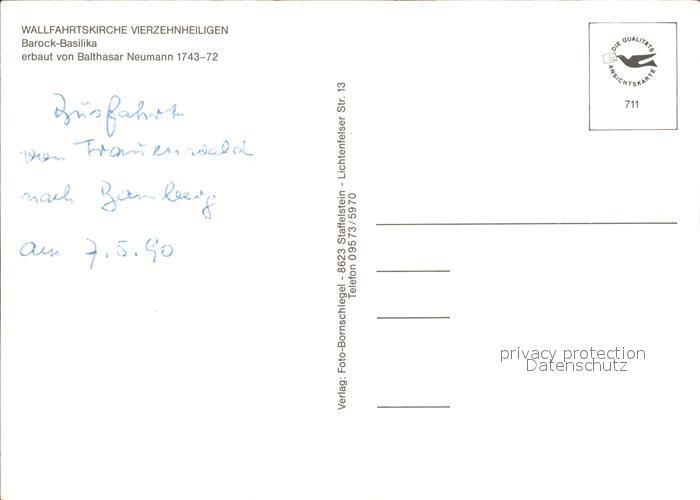 WALLFAHRTSKIRCHE VIERZEHNHEILIGEN
Barock-Basilika
erbaut von Balthasar Neumann 1743–72
Busfahrt
von Frauenwald
nach Bamberg
am 7.5.90
Verlag: Foto-Bornschlegel - 8623 Staffelstein - Lichtenfelser Str. 13
Telefon 09573/5970
DIE QUALITÄTS
ANSICHTSKARTE
711
privacy protection
Datenschutz